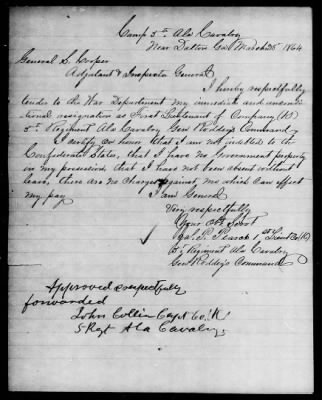 Camp 5th Ala Cavalry
Near Dalton Ga March 25 1864
General S. Cooper
Adjutant & Inspector General
I hereby respectfully
tender to the War Department my immediate and uncondi
tional resignation as First Lieutenant of Company (K)
5th Regiment Ala Cavalry Genl Roddey's Command
I certify on honor that I am not indebted to the
Confederate States, that I have no Government property
in my possession, that I have not been absent without
leave, there are no charges against me which can effect
my pay. I am General
Very respectfully
Your Obt Servt
P. Pearce 1st Lieut Co (K)
5th Regiment Ala Cavalry
Genl Roddey's Command
Approved respectfully
forwarded
John Collin Capt Co. K
5 Regt Ala Cavalry